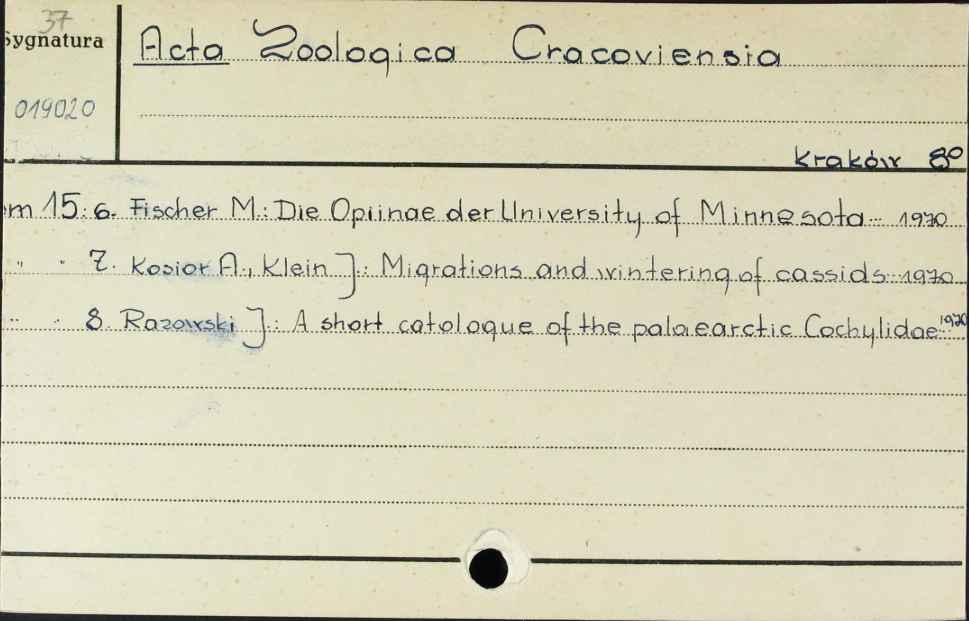 37
Sygnatura
Acta Zoologica Cracoviensia
019020
Kraków 8°
m 15: 6. Fischer M.: Die Opiinae der University of Minnesota 1970
" " 7. Kosior A., Klein J.: Migrations and wintering of cassids 1970
" " 8. Razowski J.: A short catologue of the palaearctic Cochylidae 1970